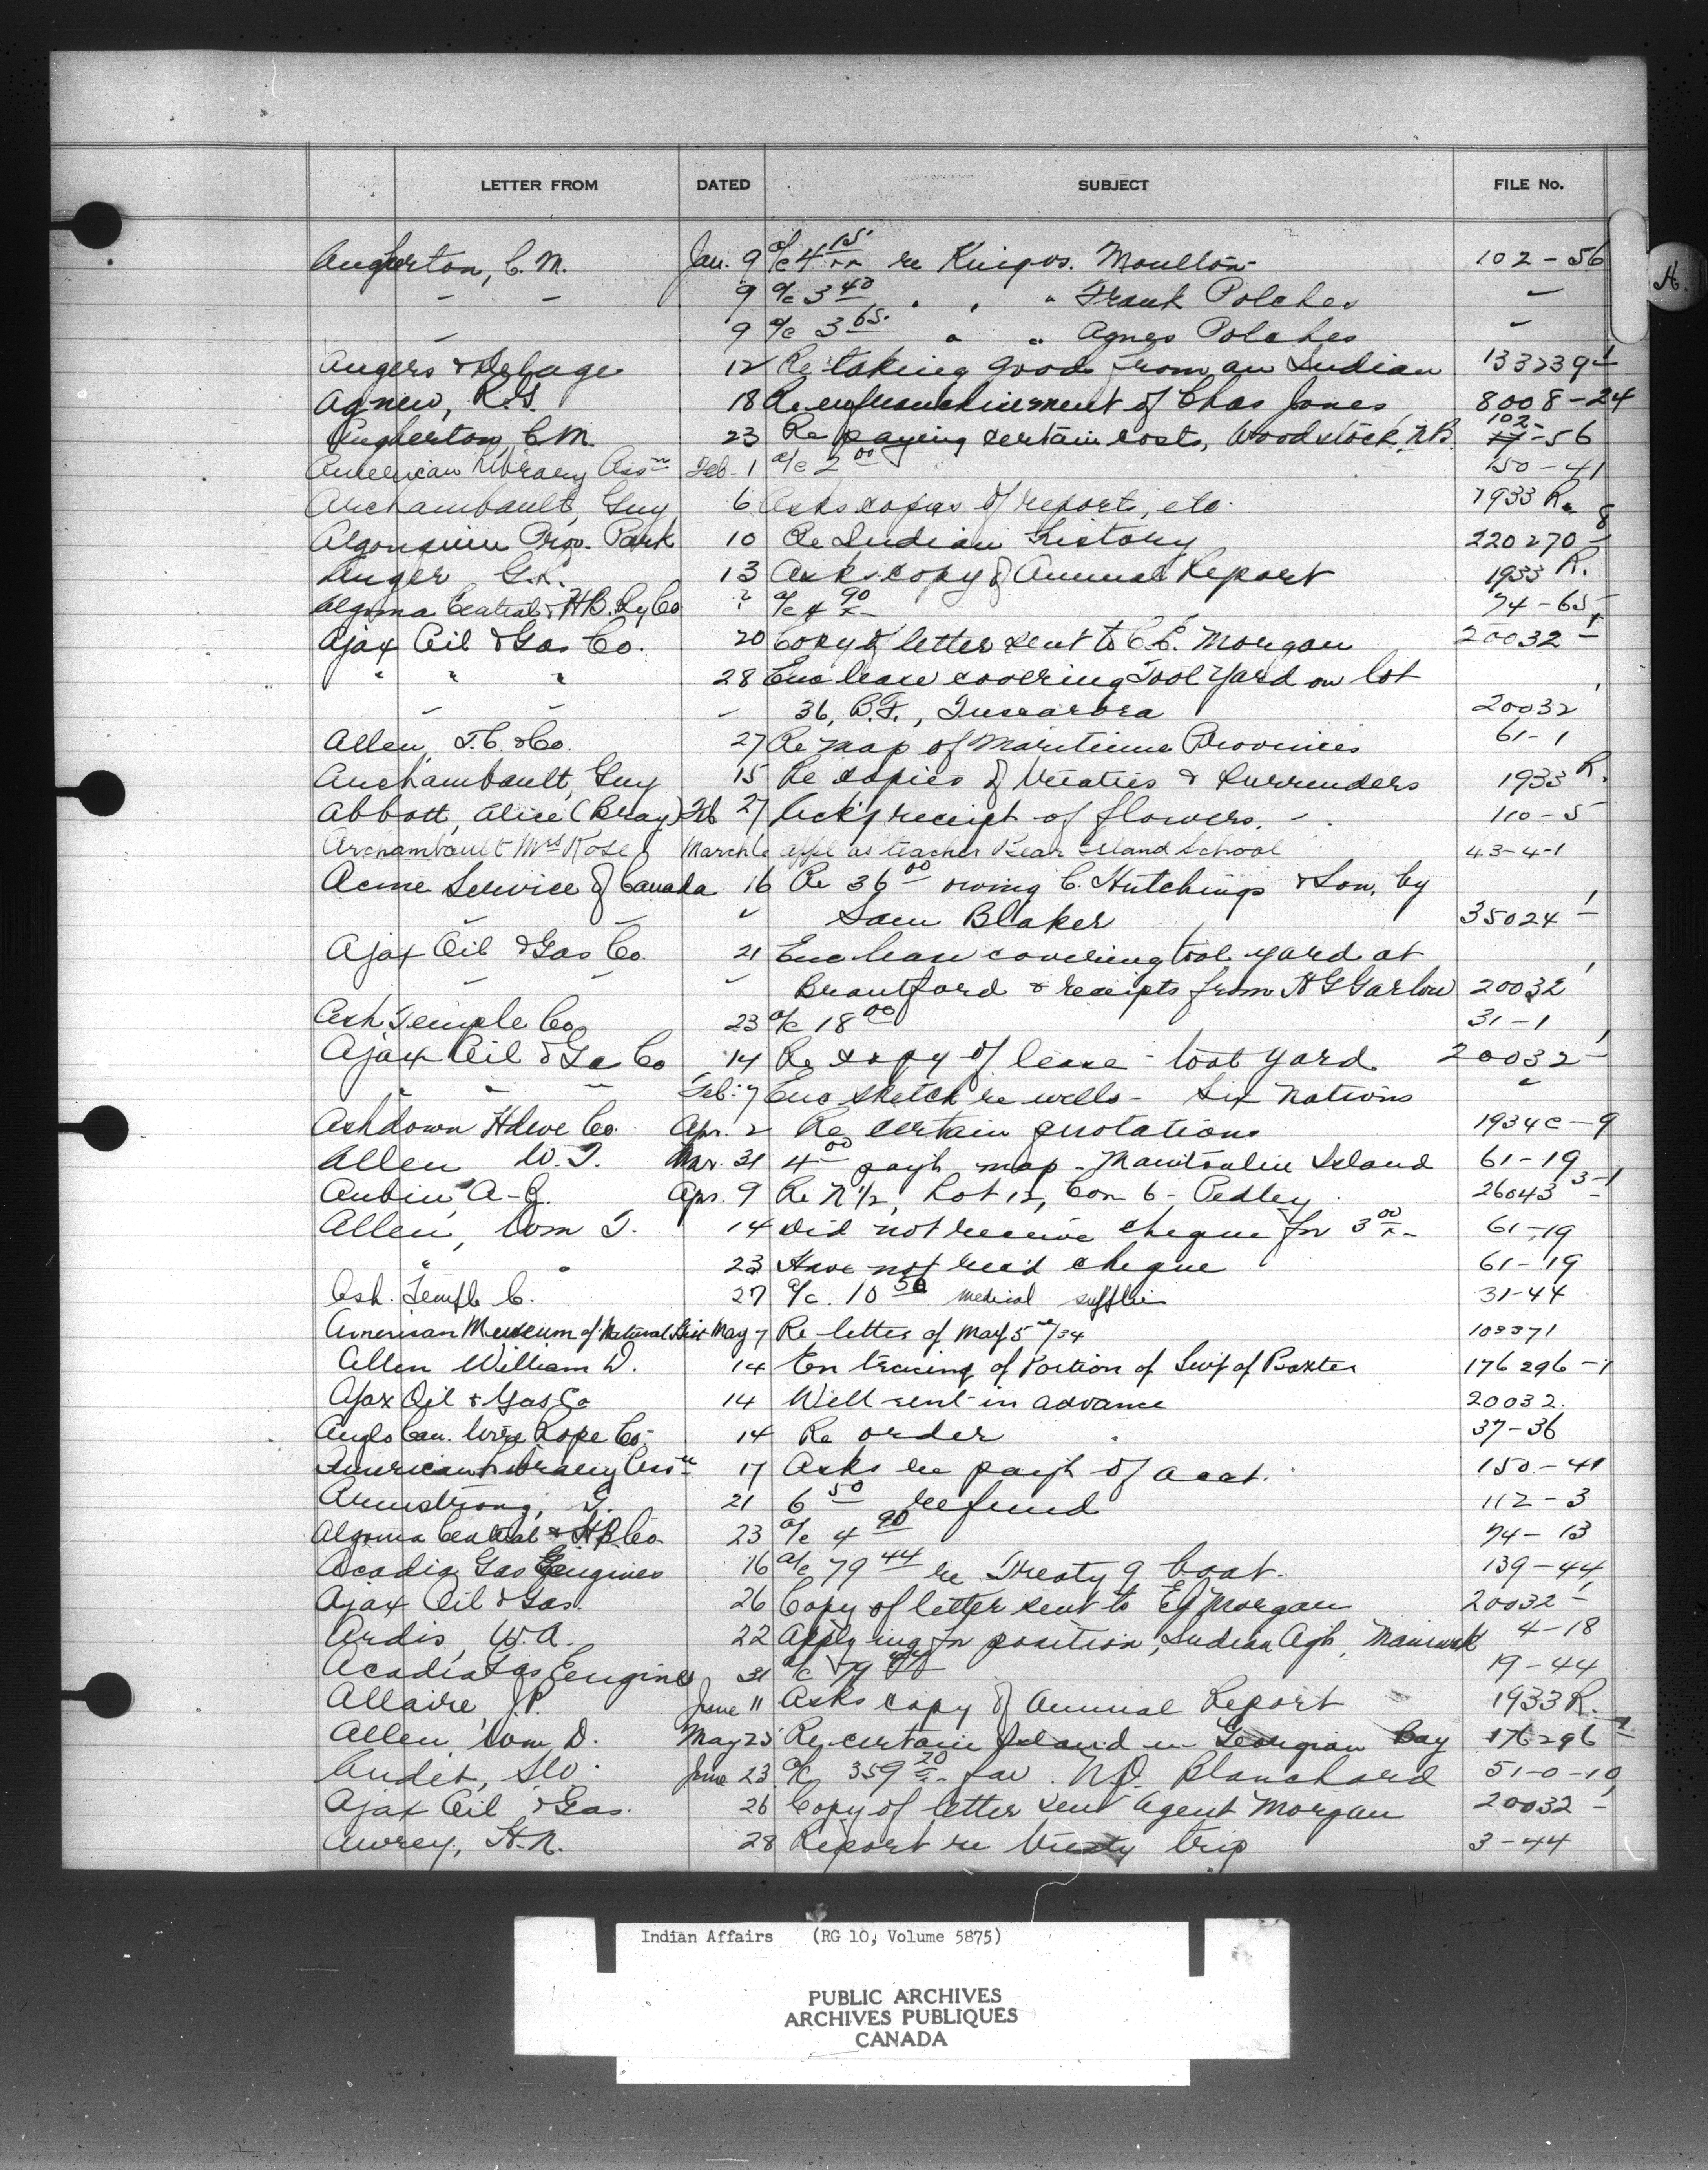 LETTER FROM DATED SUBJECT FILE No.
A.
Augherton, C. M. Jan. 9 a/c 4 15/xx re King vs. Moulton 102-56
" " 9 a/c 3 40 " " " Frank Polches "
" 9 a/c 3 65 " " Agnes Polches "
Angers & 12 Re taking goods from an Indian 133239-1
Agnew, R.G. 18 Re enfranchisement of Chas Jones 8008-24
Augherton, C.M. 23 Re paying certain costs, Woodstock, N.B. 102-56
American Library Assn Feb. 1 a/c 2 00 150-41
Archambault, Guy 6 Asks copies of report, etc. 1933 R.
Algonquin Prov. Park 10 Re Indian History 220270-8
Anger G.R. 13 Asks copy of Annual Report 1933 R.
Algoma Central & H.B. Ry Co ? a/c 4 90/x 74-65
Ajax Oil & Gas Co. 20 Copy of letter sent to C.E. Morgan 20032-1
" " " 28 Enc lease covering Tool Yard on lot
" " " 36, B.F., Tuscarora 20032-1
Allen, T.C. & Co. 27 Re map of Maritime Provinces 61-1
Archambault, Guy 15 Re copies of Treaties & Surrenders 1933 R.
Abbott, Alice (Bray) Feb 27 Ack'g receipt of flowers. 110-5
Archambault Mrs Rose March 6 appl as teacher Bear Island School 43-4-1
Acme Service of Canada 16 Re 36 00 owing C. Hutchings & Son, by
" " " Sam Blaker 35024-1
Ajax Oil & Gas Co. 21 Enc lease covering tool yard at
" " " Brantford & receipts from H G Garlow 20032-1
Ash Temple Co. 23 a/c 18 00 31-1
Ajax Oil & Gas Co 14 Re copy of lease - tool yard 20032-1
" " " Feb. 7 Enc sketch re wells - Six Nations "
Ashdown Hdwe Co. Apr. 2 Re certain quotations 1934 C-9
Allen W. T. Mar. 31 4 00 payt map - Manitoulin Island 61-19
Aubin, A-R. Apr. 9 Re N 1/2, Lot 12, Con 6 - Pedley 26043 3-1
Allen, Wm T. 14 Did not receive cheque for 3 00/x 61-19
" " 23 Have not rec'd cheque 61-19
Ash. Temple C. 27 a/c. 10 50 medical supplies 31-44
American Museum of Natural Hist May 7 Re letter of May 5th/34 103371
Allen William D. 14 En tracing of Portion of Twp of Baxter 176296-1
Ajax Oil & Gas Co 14 Well rent in advance 20032.
Anglo Can. Wire Rope Co. 14 Re order 37-36
American Library Assn 17 Asks re payt of acct. 150-41
Armstrong, T. 21 6 50 refund 112-3
Algoma Central & H B Co. 23 a/c 4 90 74-13
Acadia Gas Engines 16 a/c 79 44 re Treaty 9 boat. 139-44
Ajax Oil & Gas. 26 Copy of letter sent to Morgan 20032-1
Ardis, W.A. 22 Applying for position, Indian Agt, 4-18
Acadia Gas Engines 31 a/c 79 44 19-44
Allaire, J.P. June 11 Asks copy of Annual Report 1933 R.
Allen, Wm D. May 25 Re certain Island in Georgian Bay 176296-1
Audet, June 23 a/c 359 20/x fav. N.D. Blanchard 51-0-10
Ajax Oil & Gas. 26 Copy of letter sent Agent Morgan 20032-1
Awrey, H.N. 28 Report re Treaty trip 3-44
Indian Affairs (RG 10, Volume 5875)
PUBLIC ARCHIVES
ARCHIVES PUBLIQUES
CANADA